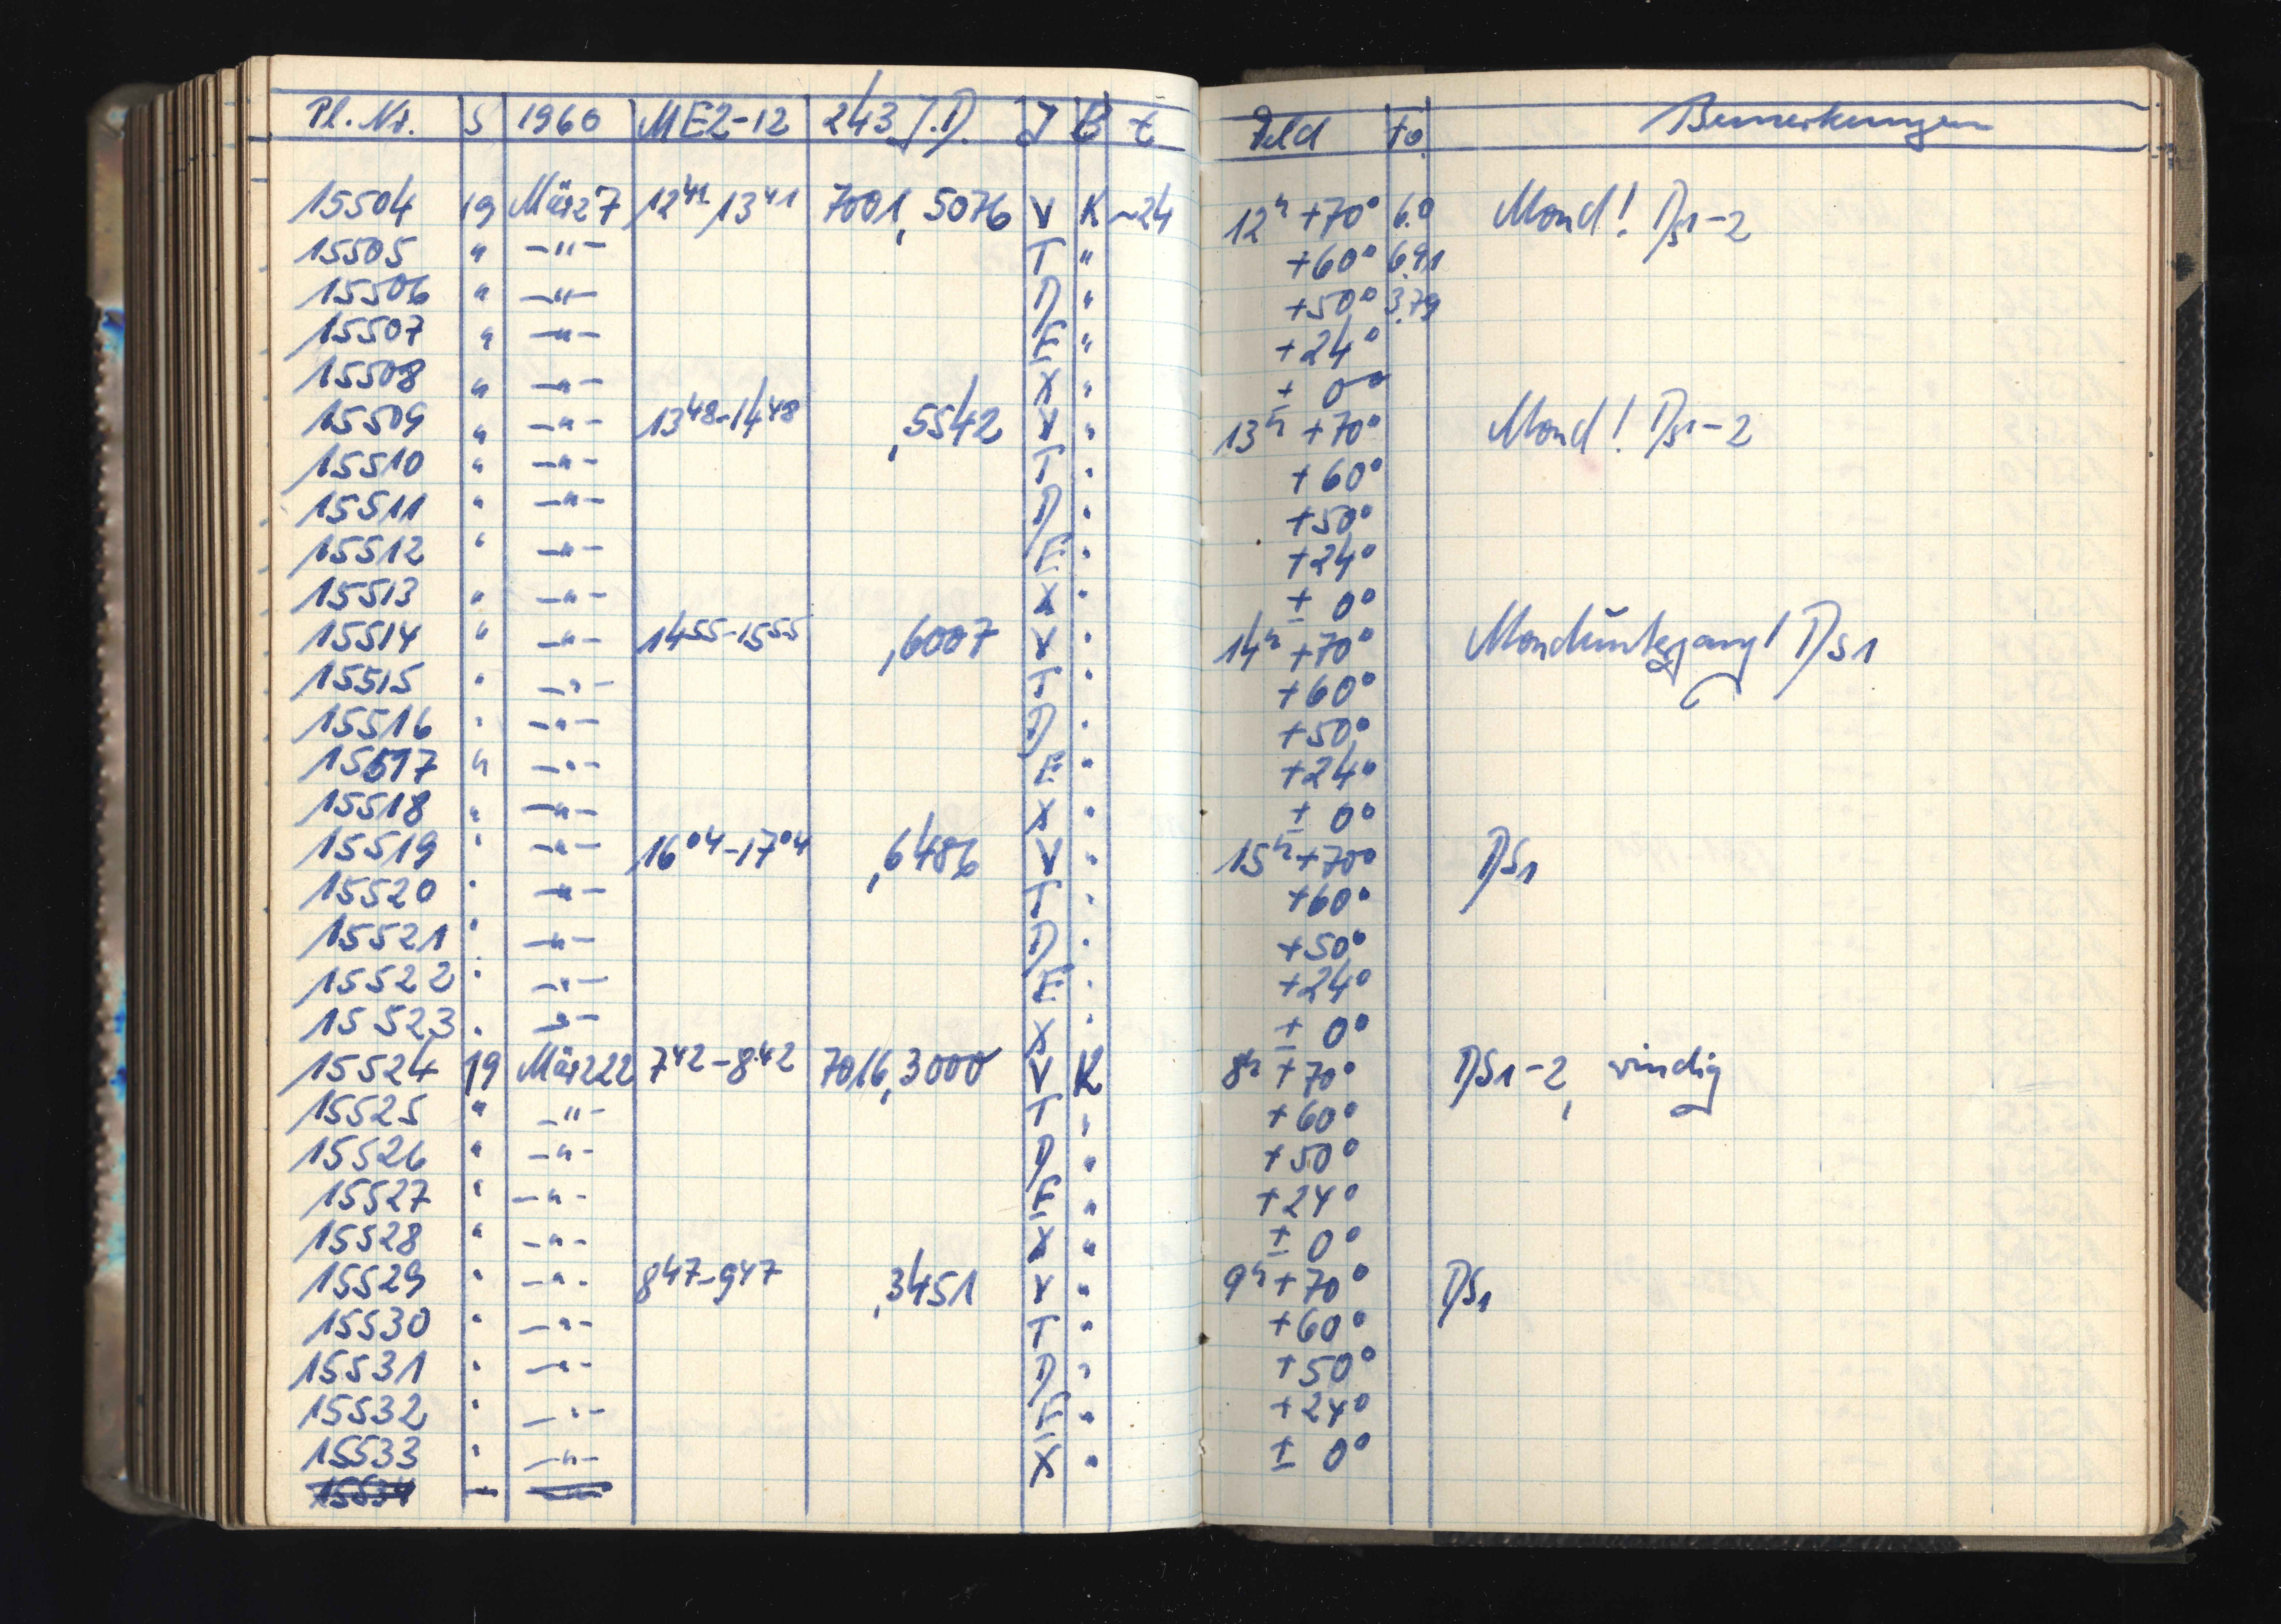 Pl. Nr. S 1960 MEZ-12 243 J.D. J B t Feld t0 Bemerkungen
15504 19 März 7 12 41 13 41 7001,5076 V K ~24 12h +70° 6.0 Mond! D S1-2
15505 " -"- T " +60° 6.91
15506 " -"- D " +50° 3.79
15507 " -"- E " +24°
15508 " -"- X " ± 0°
15509 " -"- 13 48-14 48 ,5542 V " 13h +70° Mond! D S1-2
15510 " -"- T " +60°
15511 " -"- D " +50°
15512 " -"- E " +24°
15513 " -"- X " ± 0°
15514 " -"- 14 55-15 55 ,6007 V " 14h +70° Monduntergang! D S1
15515 " -"- T " +60°
15516 " -"- D " +50°
15517 " -"- E " +24°
15518 " -"- X " ± 0°
15519 " -"- 16 04-17 04 ,6486 V " 15h +70° D S1
15520 " -"- T " +60°
15521 " -"- D " +50°
15522 " -"- E " +24°
15523 " -"- X " ± 0°
15524 19 März 22 7 42-8 42 7016,3000 V K 8h +70° D S1-2, windig
15525 " -"- T " +60°
15526 " -"- D " +50°
15527 " -"- E " +24°
15528 " -"- X " ± 0°
15529 " -"- 8 47-9 47 ,3451 V " 9h +70° D S1
15530 " -"- T " +60°
15531 " -"- D " +50°
15532 " -"- E " +24°
15533 " -"- X " ± 0°
15534